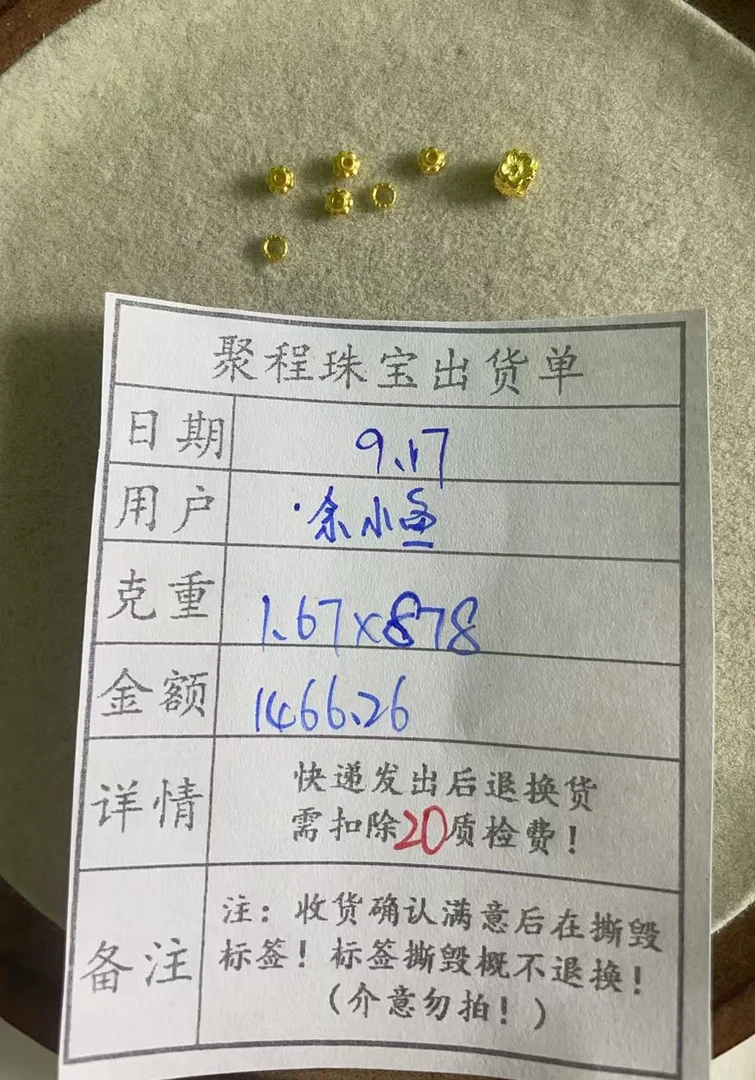 聚程珠宝出货单
日期 9.17
用户 余小鱼
克重 1.67×878
金额 1466.26
详情 快递发出后退换货
需扣除20质检费!
备注 注:收货确认满意后在撕毁
标签!标签撕毁概不退换!
(介意勿拍!)